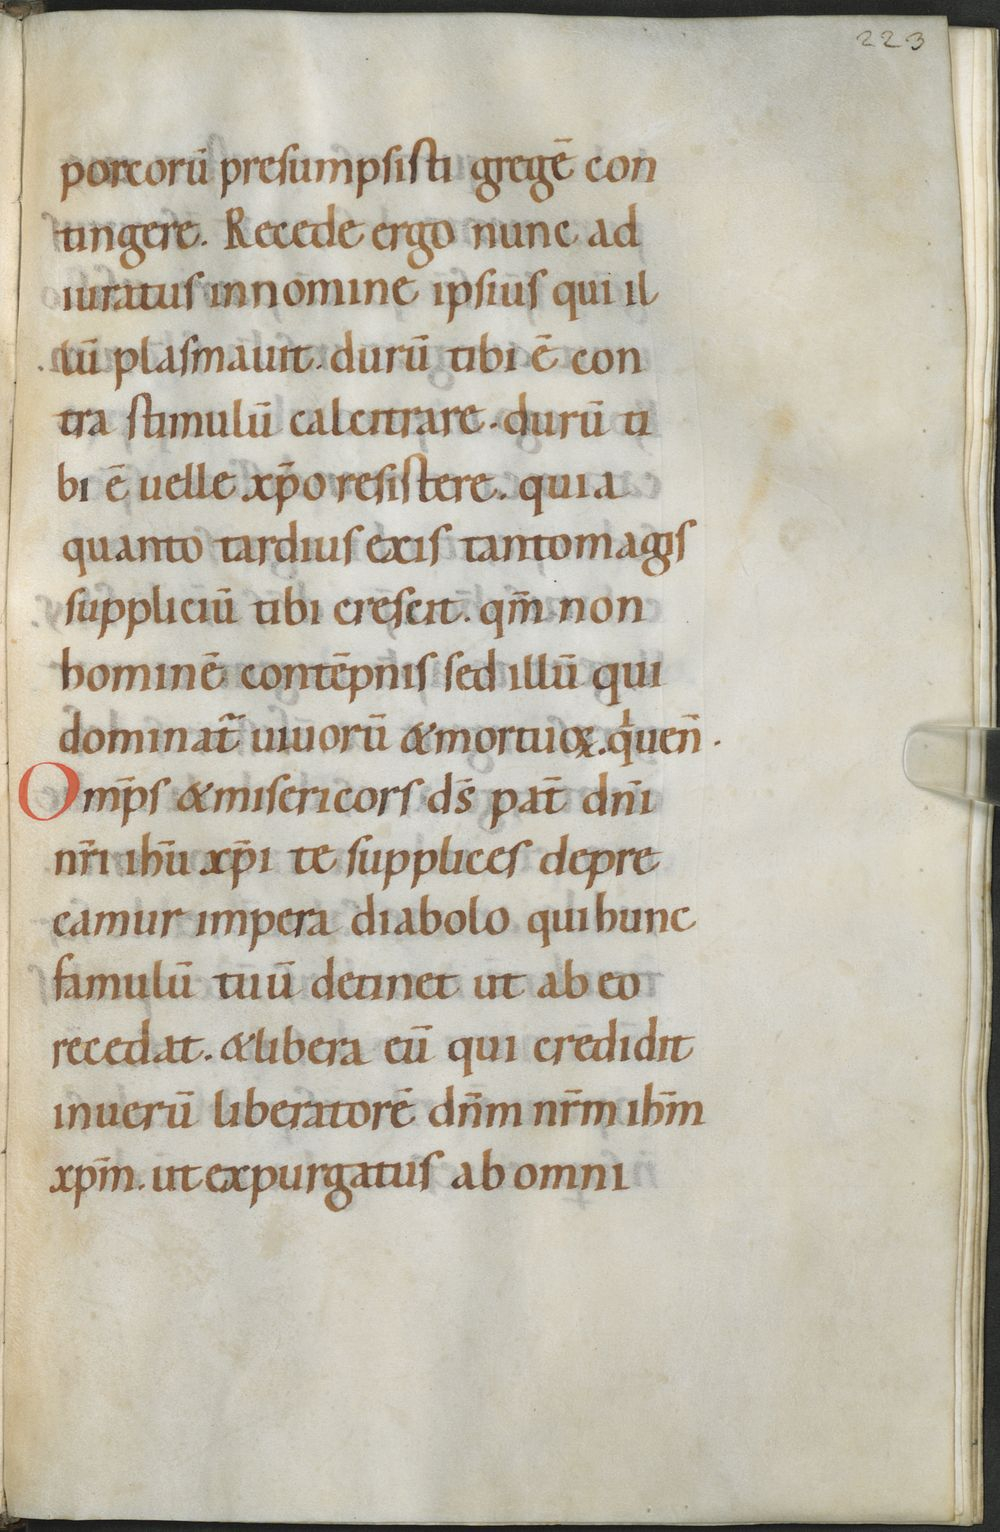 223
porcorū presumpsisti gregē con
tingere. Recede ergo nunc ad
iuratus innomine ipsius qui il
lū plasmauit. durū tibi ē con
tra stimulū calcitrare. durū ti
bi ē uelle xp̄o resistere. quia
quanto tardius exis tantomagis
suppliciū tibi crescit. qm̄ non
hominē contēpnis sed illū qui
dominat̄ uiuorū &mortuoꝝ. q́uen̄.
Omp̄s &misericors ds̄ pat̄ dn̄i
nr̄i ihū xp̄i te supplices depre
camur impera diabolo quihunc
famulū tuū detinet ut abeo
recedat. &libera eū qui credidit
inuerū liberatorē dn̄m nr̄m ihm̄
xpm̄. utexpurgatus abomni